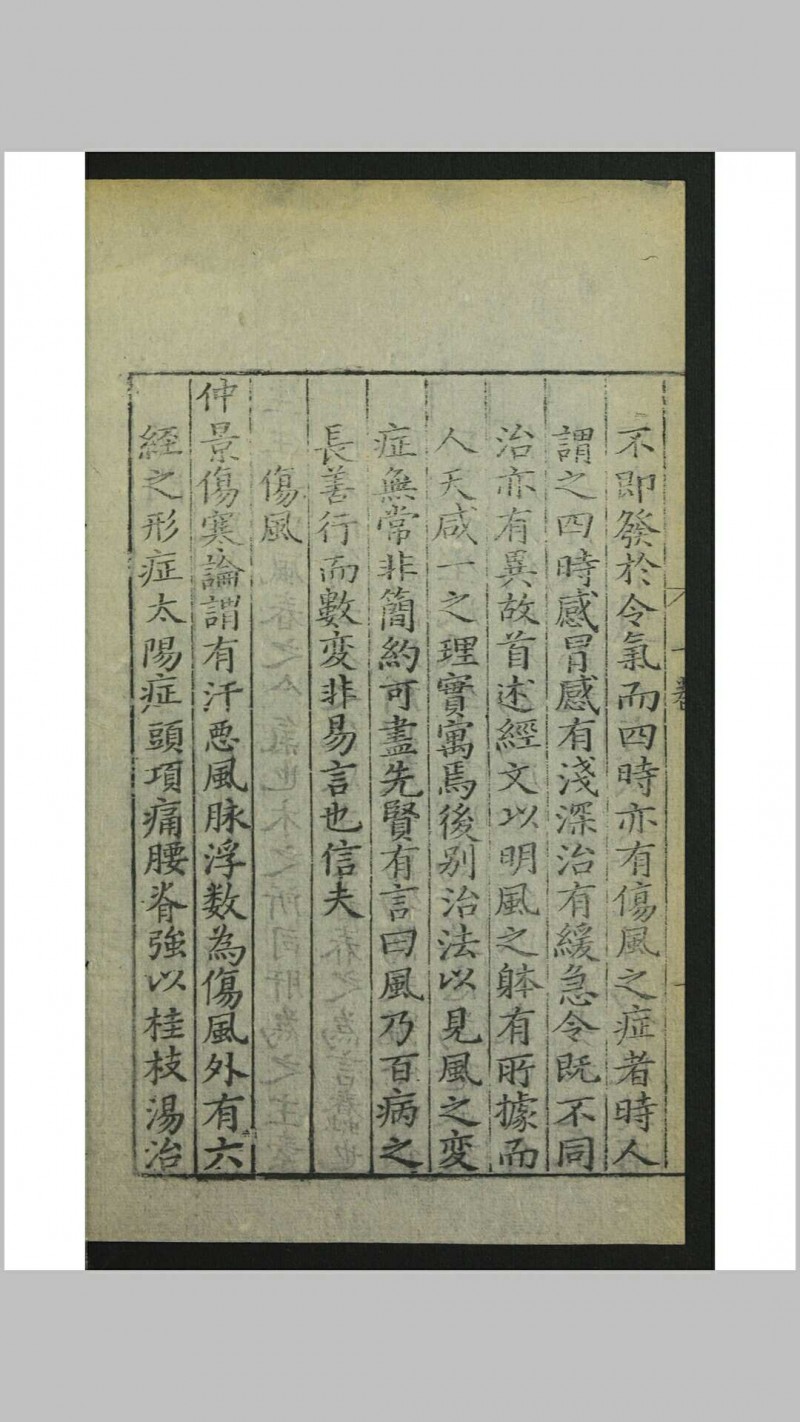 不即發於令氣而四時亦有傷風之症者時人
謂之四時感冒感有淺深治有緩急令既不同
治亦有異故首述經文以明風之躰有所據而
人天咸一之理實寓焉後别治法以見風之変
症無常非簡約可盡先賢有言曰風乃百病之
長善行而數変非易言也信夫
傷風
仲景傷寒論謂有汗惡風脉浮数為傷風外有六
經之形症太陽症頭項痛腰脊強以桂枝湯治